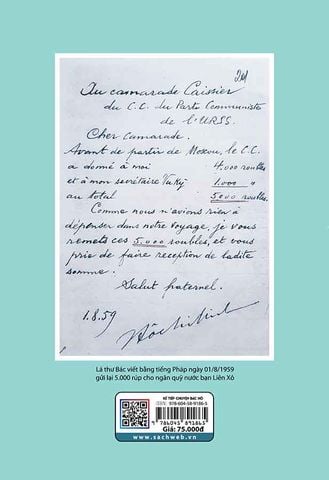 211
Au camarade Caissier
du C.C. du Parti Communiste
de l'URSS.
Cher camarade.
Avant de partir de Moscou, le C.C.
a donné à moi 4.000 roubles
et à mon secrétaire Vu Kỳ 1.000 "
au total 5000 roubles.
Comme nous n'avions rien à
dépenser dans notre voyage, je vous
remets ces 5.000 roubles, et vous
prie de faire reception de ladite
somme.
Salut fraternel.
1.8.59
Hồ Chí Minh
Lá thư Bác viết bằng tiếng Pháp ngày 01/8/1959
gửi lại 5.000 rúp cho ngân quỹ nước bạn Liên Xô
KỂ TIẾP CHUYỆN BÁC HỒ
ISBN: 978-604-58-9186-5
9 786045 891865
Giá: 75.000đ
www.sachweb.vn